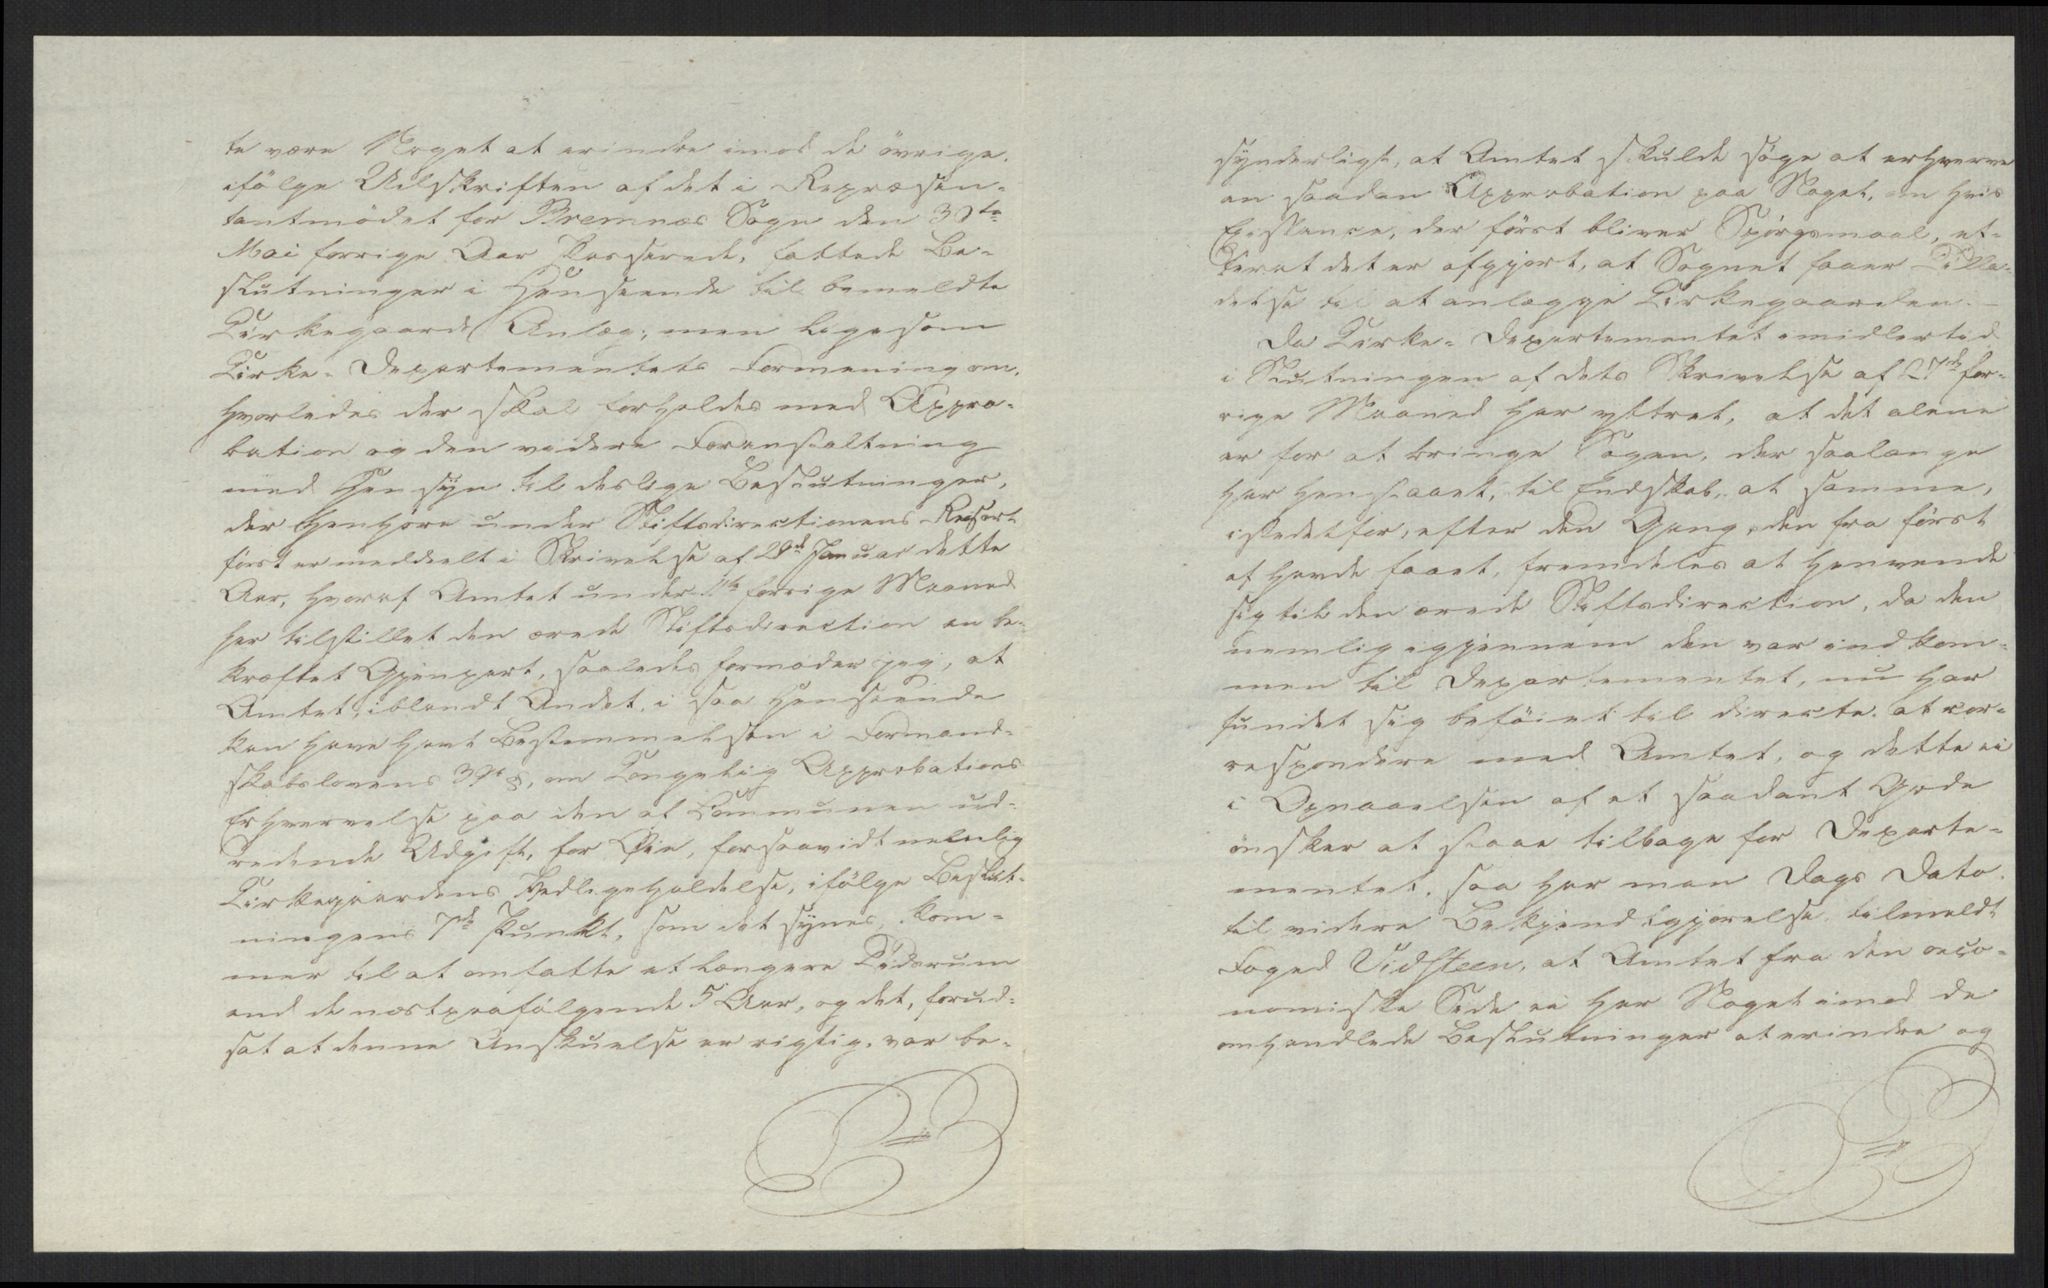 te være Noget at erindre imod de övrige,
ifölge Udskriften af det i Repræsen-
tantmödet for Bremnæs Sogn den 30te
Mai forrige Aar Passerede, fattede Be-
slutninger i Henseende til bemeldte
Kirkegaards Anlæg; men ligesom
Kirke-Departementets Formening om,
hvorledes der skal forholdes med Appro-
bation og den videre Foranstaltning
med Hensyn til deslige Beslutninger,
der henhöre under Stiftsdirectionens Resort
först er meddeelt i Skrivelse af 29de Januar dette
Aar, hvoraf Amtet under 11te forrige Maaned
har tilstillet den ærede Stiftsdirection en be-
kræftet Gjenpart, saaledes formoder jeg, at
Amtet, iblandt Andet, i saa Henseende
kan have havt Bestemmelsen i Formand-
skabslovens 39te §, om Kongelig Approbations
Erhvervelse paa den af Communen ud-
redende Udgift, for Øie, forsaavidt nemlig
Kirkegaardens Vedligeholdelse, ifölge Beslut-
ningens 7de Punkt, som det synes, kom-
mer til at omfatte et længere Tidsrum
end de næstpaafölgende 5 Aar, og det, forud-
sat at denne Anskuelse er rigtig, var be-
synderligt, at Amtet skulde söge at erhverve
en saadan Approbation paa Noget, om hvis
Existence, der först bliver Spörgsmaal, ef-
terat det er afgjort, at Sognet faaer Tilla-
delse til at anlægge Kirkegaarden.
Da Kirke-Departementet imidlertid
i Slutningen af dets Skrivelse af 27de for-
rige Maaned har yttret, at det alene
er for at bringe Sagen, der saalænge
har henstaaet, til Endskab, at samme,
istedetfor, efter den Gang, den fra först
af havde faaet, fremdeles at henvende
sig til den ærede Stiftsdirection, da den
nemlig igjennem den var indkom-
men til Departementet, nu har
fundet sig beföiet til directe at cor-
respondere med Amtet, og dette ei
i Opnaaelsen af et saadant Gode
önsker at staae tilbage for Departe-
mentet, saa har man Dags Dato
til videre Bekjendtgjörelse tilmeldt
Foged Vidsteen, at Amtet fra den oeco-
nomiske Side ei har Noget imod de
omhandlede Beslutninger at erindre og